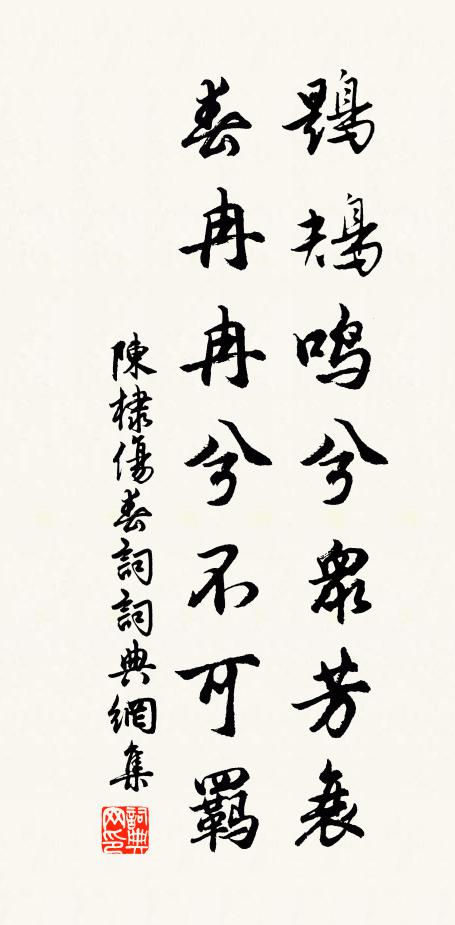 鶗鴂鳴兮眾芳衰
春冉冉兮不可羈
陳棣傷春詞詞典網集
詞典网印